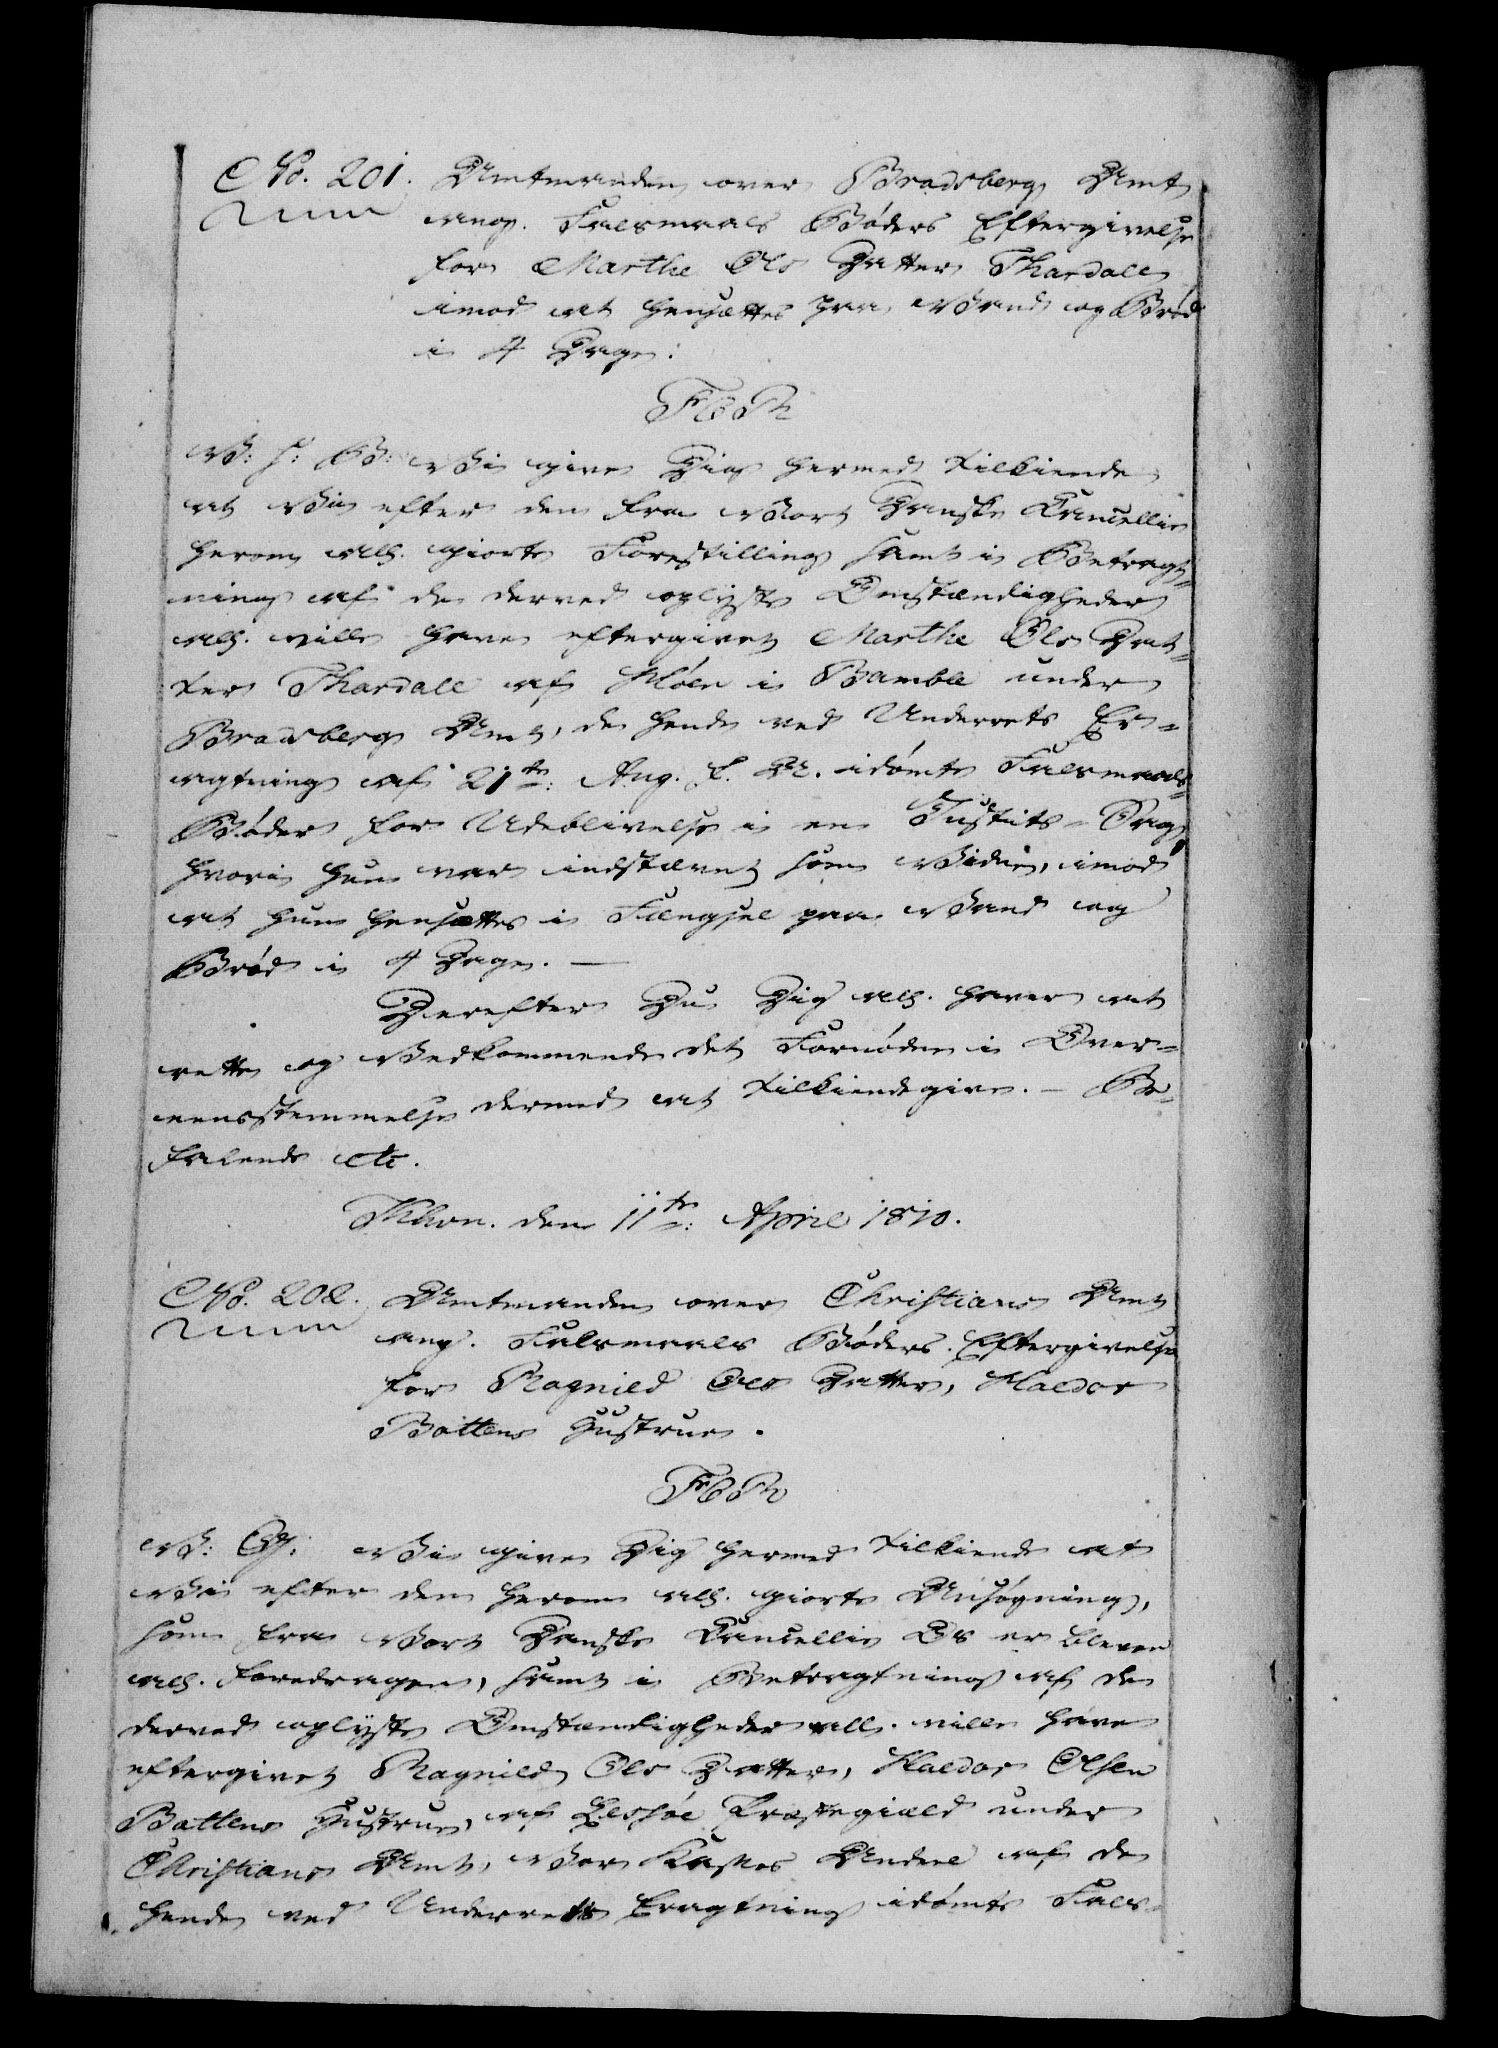 No. 201. Amtmanden over Bradsberg Amt
ang. Falsmaals Bøders Eftergivelse
for Marthe Ols Datter Thardall
imod at hensættes paa Vand og Brød
i 4 Dage.
F 6 R
V: S: B: Vi give Dig hermed tilkiende
at Vi efter den fra Vort Danske Cancellie
herom allr. giorte Forestilling samt i Betragt-
ning af de derved oplyste Omstændigheder
allr. ville have eftergivet Marthe Ols Dat-
ter Thardall af i Bamble under
Bradsberg Amt, de hende ved Underrets Er-
agtning af 21de Aug. f. A. idømte Falsmaals-
Bøder for Udeblivelse i en Justits-Sag,
hvori hun var indstævnet som Vidne, imod
at hun hensættes i Fængsel paa Vand og
Brød i 4 Dage. —
Derefter Du Dig allr. haver at
rette og Vedkommende det Fornødne i Over-
eensstemmelse dermed at tilkiendegive. – Be-
falende etc.
Khvn. den 11te April 1810.
No. 202. Amtmanden over Christians Amt
ang. Falsmaals Bøders Eftergivelse
for Ragnild Ols Datter, Haldor
Battens Hustrue.
F 6 R
V: G: Vi give Dig hermed tilkiende at
Vi efter den herom allr. giorte Ansøgning,
som fra Vort Danske Cancellie Os er bleven
allr. foredragen, samt i Betragtning af de
derved oplyste Omstændigheder allr. ville have
eftergivet Ragnild Ols Datter, Haldor Olsen
Battens Hustrue, af Lessøe Præstegield under
Christians Amt, Vor Kasses Andeel af de
hende ved Underrets Eragtning idømte Fals-